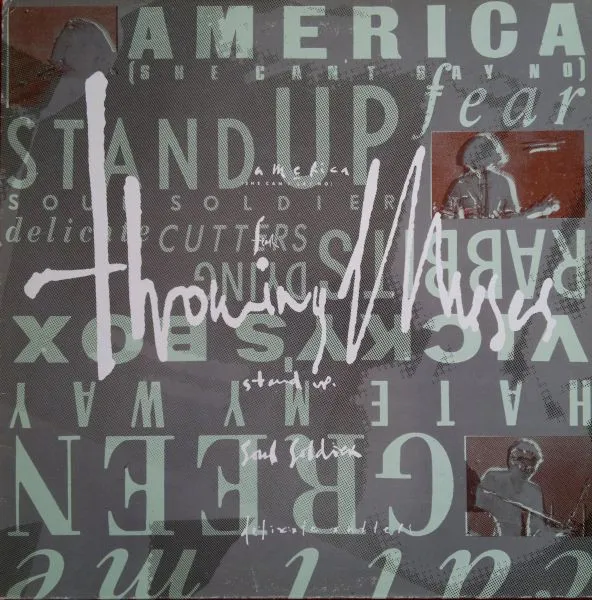 AMERICA
(SHE CAN'T SAY NO)
fear
STAND UP
america
(SHE CAN'T SAY NO)
SOUL SOLDIER
delicate CUTTERS
fear
RABBITS DYING
throwing Muses
VICKY'S BOX
stand up.
HATE MY WAY
soul soldier
GREEN
delicate cutters
call me